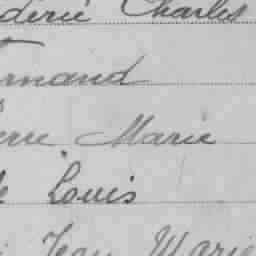 déric Charles
rnand
erre Marie
le Louis
Jean Marie